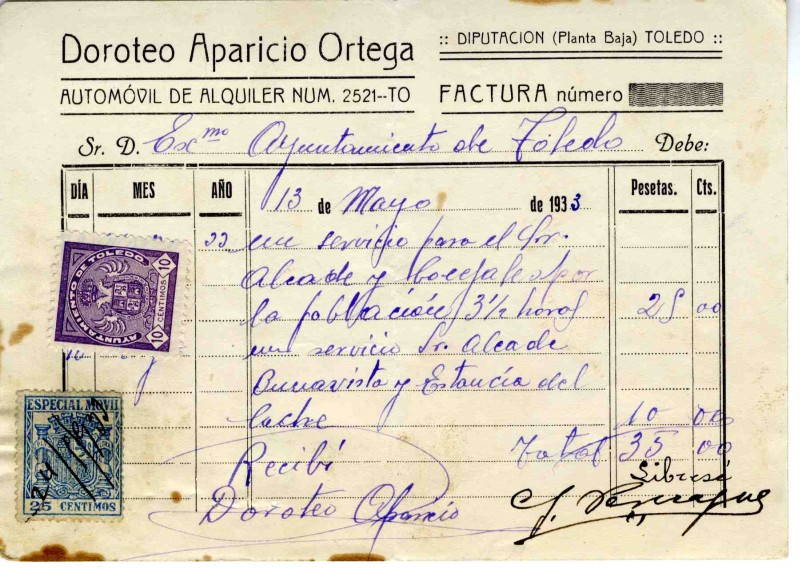 Doroteo Aparicio Ortega
:: DIPUTACION (Planta Baja) TOLEDO ::
AUTOMÓVIL DE ALQUILER NUM. 2521--TO
FACTURA número
Sr. D. Exmo Ayuntamiento de Toledo Debe:
DÍA MES AÑO 13 de Mayo de 1933 Pesetas. Cts.
33 un servicio para el Sr.
Alcade y Concejales por
la población 3 1/2 horas 25 00
un servicio Sr. Alcade
Buenavista y Estancia del
10 00
Total 35 00
Recibí
Doroteo Aparicio
AYUNTAMIENTO DE TOLEDO
10 CÉNTIMOS 10
ESPECIAL MOVIL
25 CENTIMOS